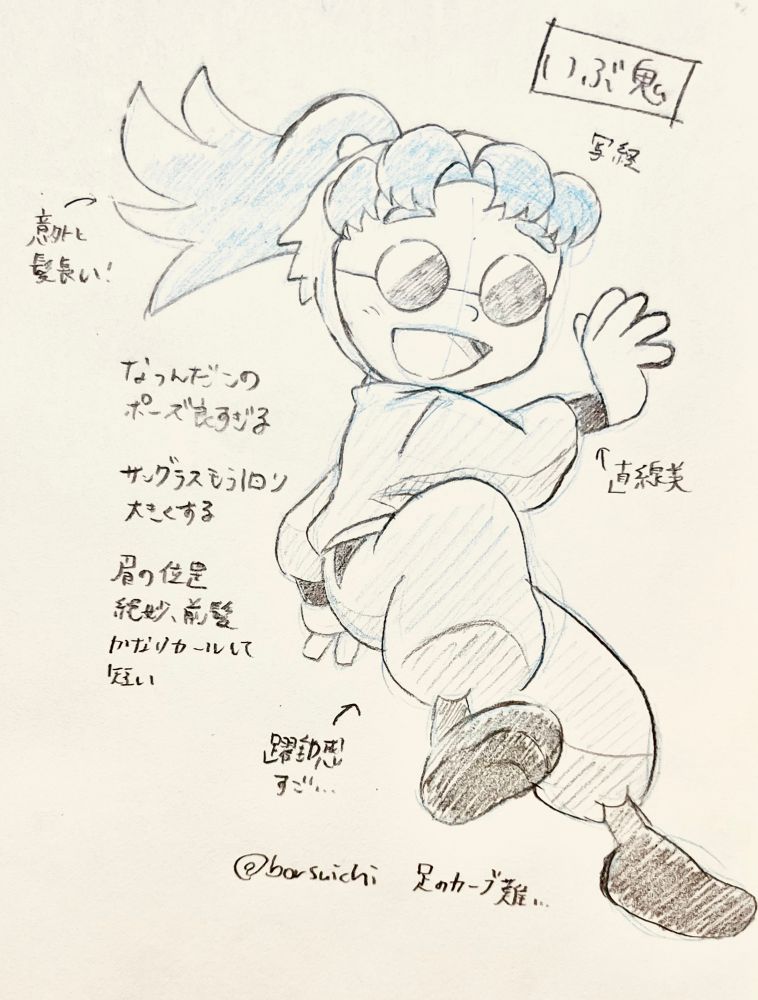 いぶ鬼
写経
意外と
髪長い!
なつんだこの
ポーズ良すぎる
サングラスもう1回り
大きくする
眉の位置
絶妙、前髪
かなりカールして
短い
直線美
躍動感
すご…
@borsuichi 足のカーブ難…